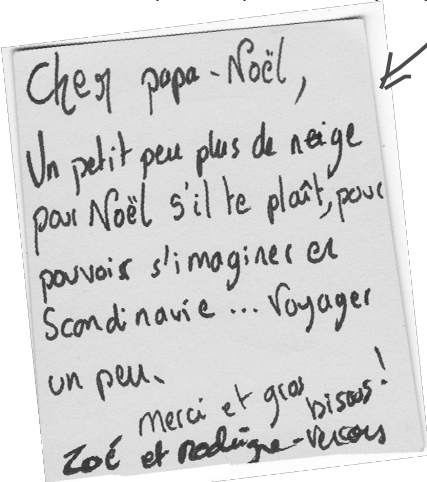 Cher papa-Noël,
Un petit peu plus de neige
pour Noël s'il te plaît, pour
pouvoir s'imaginer en
Scandinavie... Voyager
un peu.
Merci et gros bisous!
Zoé et Rodrigue-Vercors